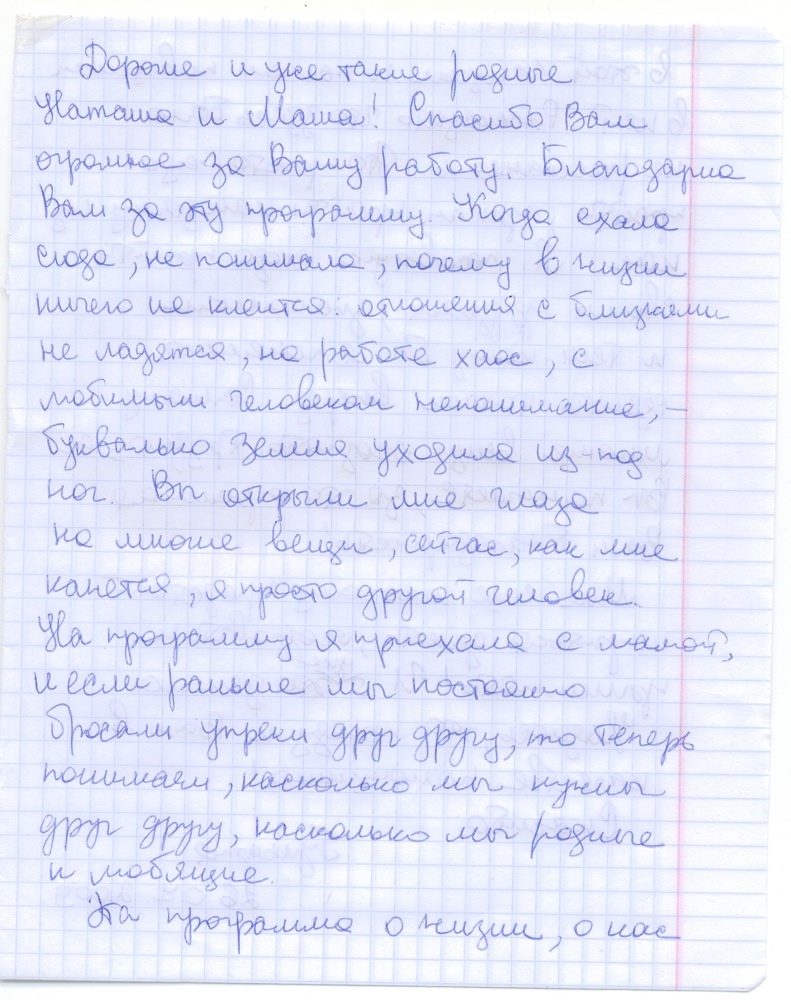 Дорогие и уже такие родные
Наташа и Маша! Спасибо Вам
огромное за Вашу работу. Благодарна
Вам за эту программу. Когда ехала
сюда, не понимала, почему в жизни
ничего не клеится: отношения с близкими
не ладятся, на работе хаос, с
любимым человеком непонимание, –
буквально земля уходила из-под
ног. Вы открыли мне глаза
на многие вещи, сейчас, как мне
кажется, я просто другой человек.
На программу я приехала с мамой,
и если раньше мы постоянно
бросали упреки друг другу, то теперь
понимаем, насколько мы нужны
друг другу, насколько мы родные
и любящие.
Эта программа о жизни, о нас